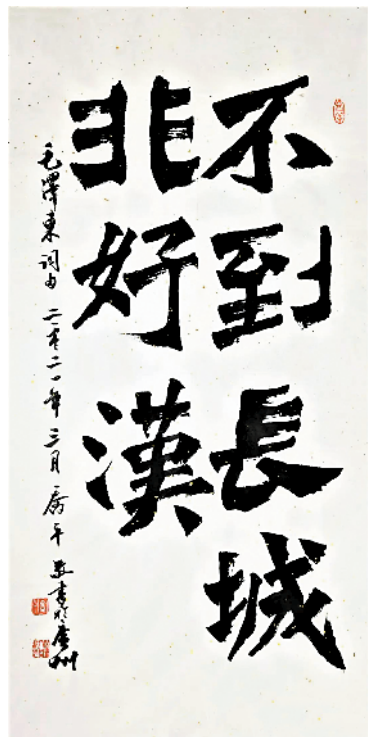 不到長城
非好漢
毛澤東詞句 二零二一年 三月 平 書於廣州